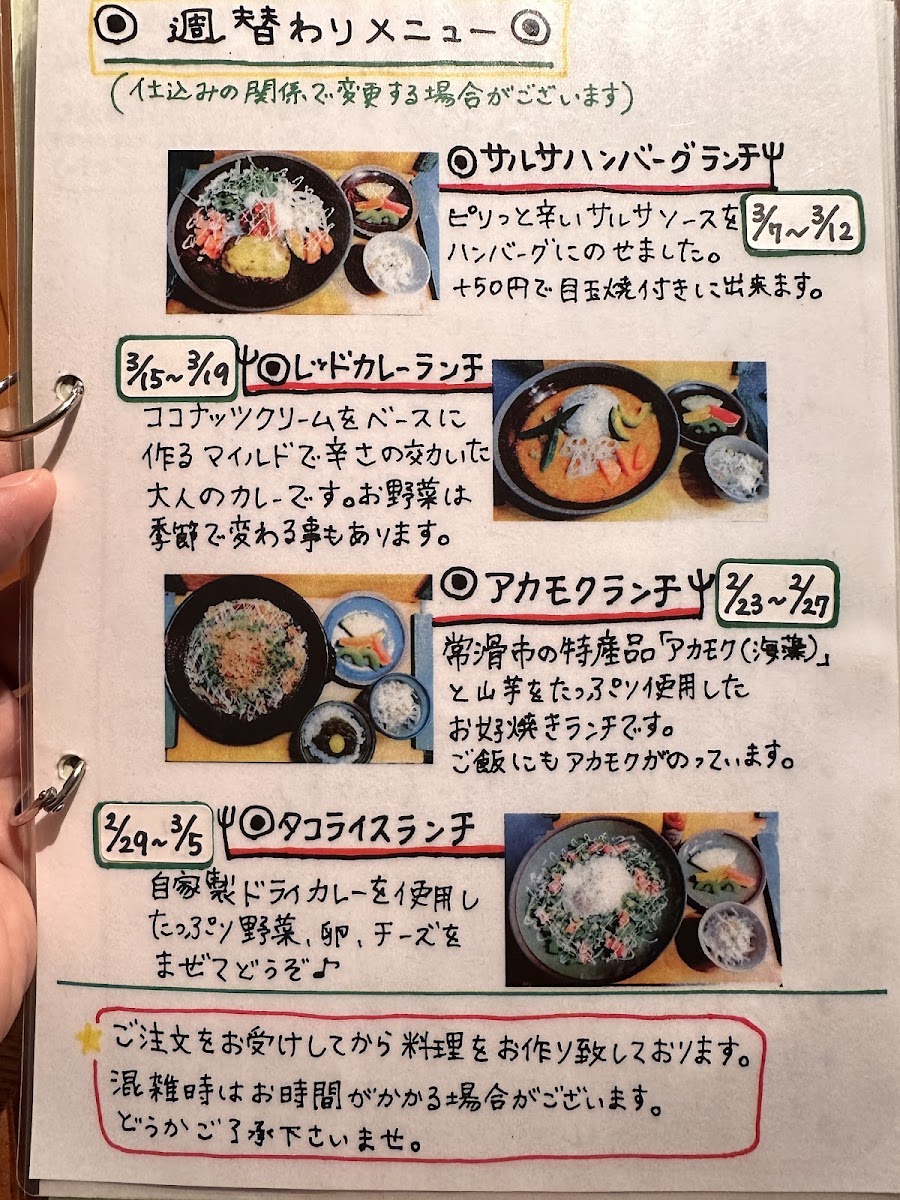 ◉ 週替わりメニュー ◉
(仕込みの関係で変更する場合がございます)
◉サルサハンバーグランチ
3/7～3/12
ピリっと辛いサルサソースを
ハンバーグにのせました。
+50円で目玉焼付きに出来ます。
3/15～3/19
◉レッドカレーランチ
ココナッツクリームをベースに
作るマイルドで辛さの効いた
大人のカレーです。お野菜は
季節で変わる事もあります。
◉アカモクランチ
2/23～2/27
常滑市の特産品「アカモク(海藻)」
と山芋をたっぷり使用した
お好焼きランチです。
ご飯にもアカモクがのっています。
2/29～3/5
◉タコライスランチ
自家製ドライカレーを使用し
たっぷり野菜、卵、チーズを
まぜてどうぞ♪
ご注文をお受けしてから料理をお作り致しております。
混雑時はお時間がかかる場合がございます。
どうかご了承下さいませ。